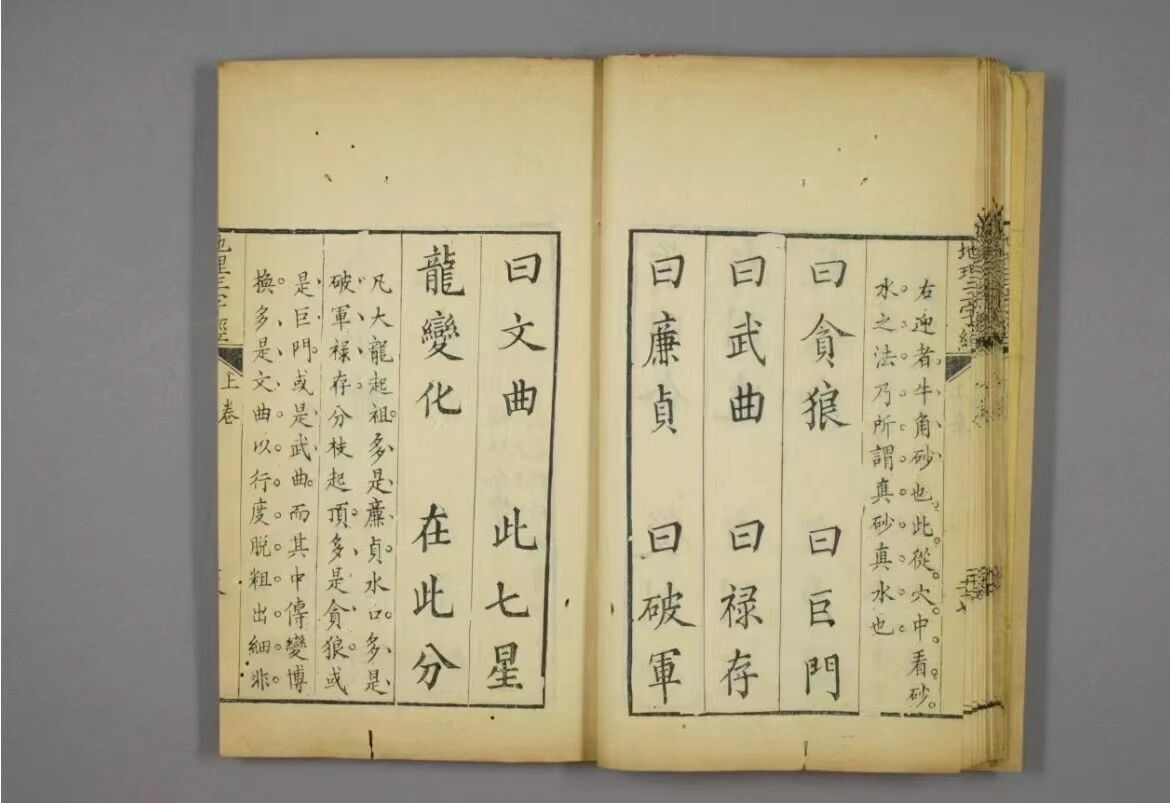 右迎者牛角砂也此從穴中看砂
水之法乃所謂真砂真水也
曰貪狼 曰巨門
曰武曲 曰禄存
曰廉貞 曰破軍
曰文曲 此七星
龍變化 在此分
凡大龍起祖多是廉貞水口多是
破軍禄存分枝起頂多是貪狼或
是巨門或是武曲而其中傳變博
換多是文曲以行度脫粗出細非
地理三字經
上卷